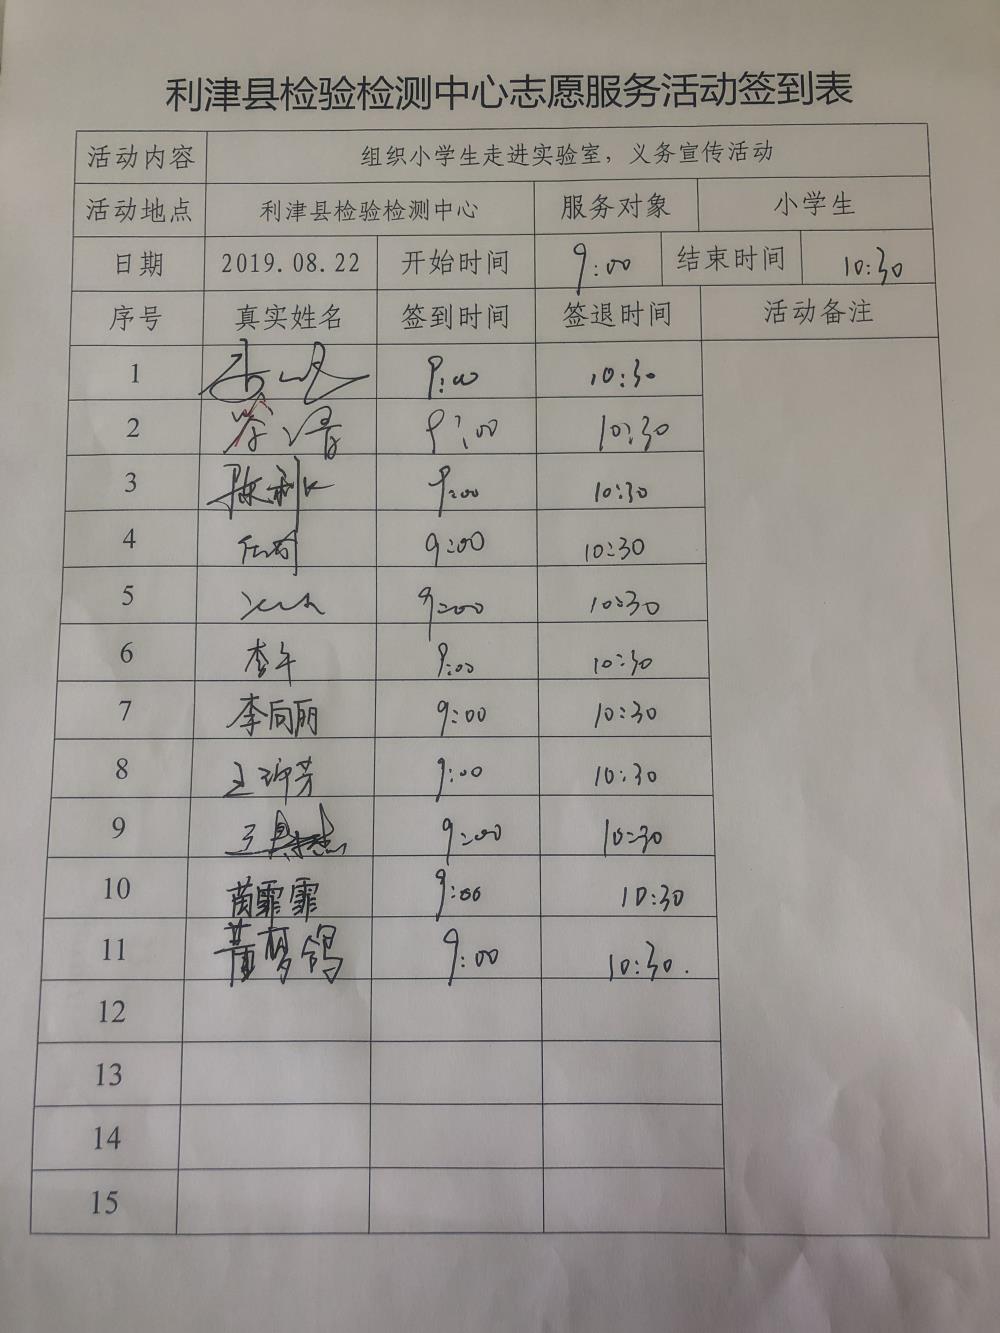 利津县检验检测中心志愿服务活动签到表
活动内容 组织小学生走进实验室，义务宣传活动
活动地点 利津县检验检测中心 服务对象 小学生
日期 2019.08.22 开始时间 9:00 结束时间 10:30
序号 真实姓名 签到时间 签退时间 活动备注
1 9:00 10:30
2 9:00 10:30
3 9:00 10:30
4 9:00 10:30
5 9:00 10:30
6 李午 9:00 10:30
7 李向丽 9:00 10:30
8 9:00 10:30
9 9:00 10:30
10 9:00 10:30
11 黄梦鸽 9:00 10:30.
12
13
14
15